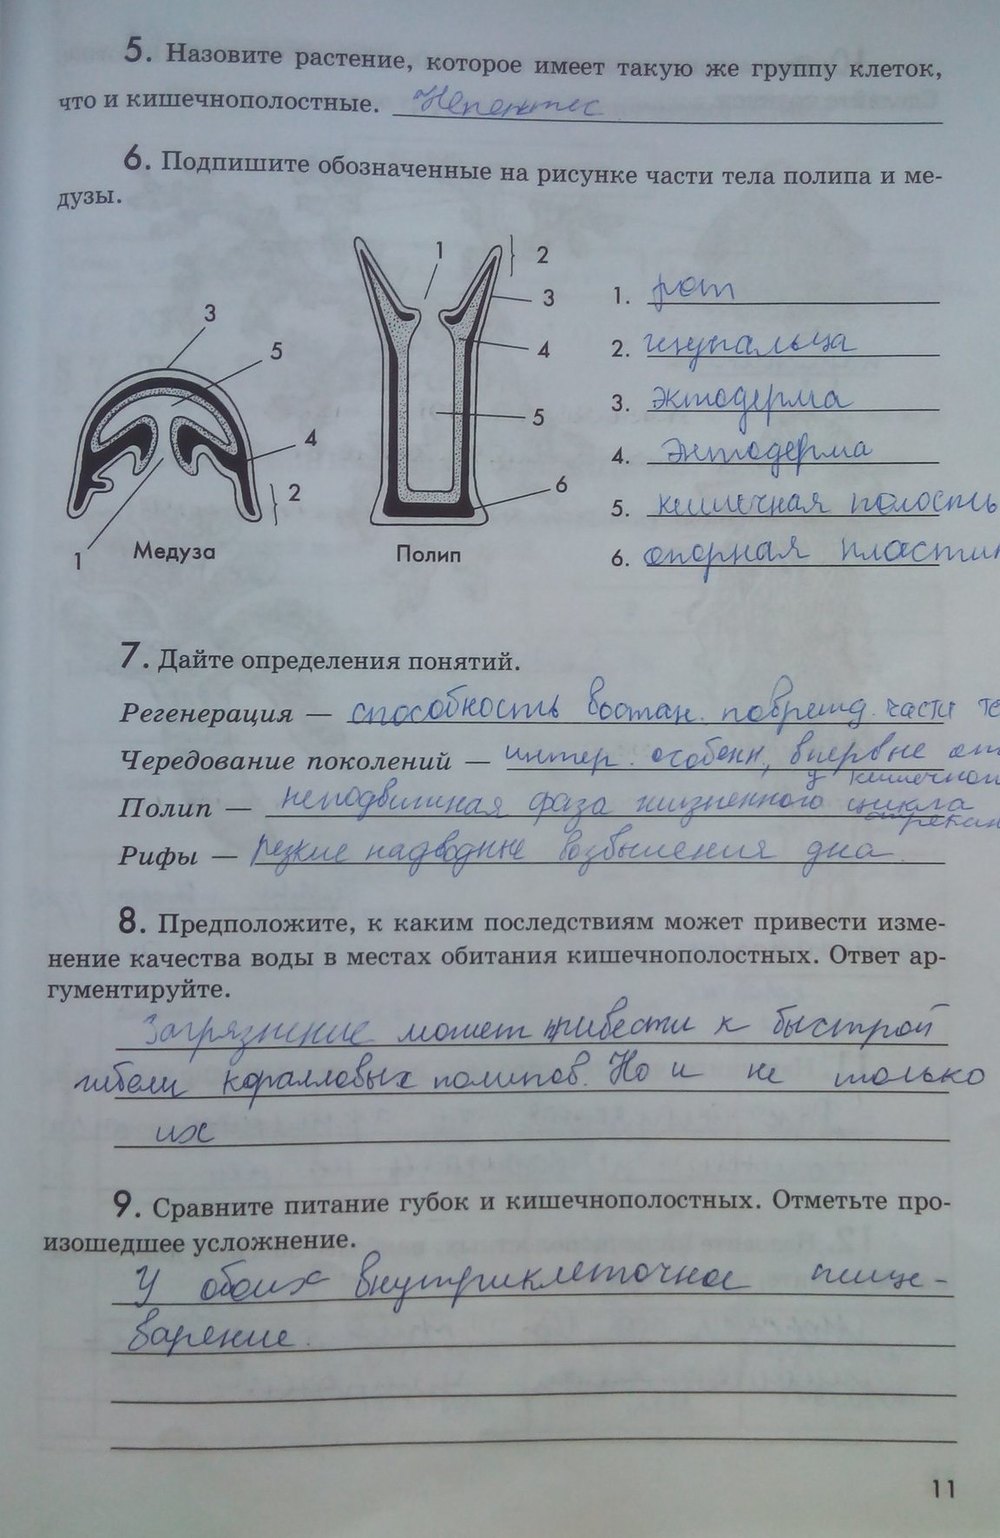 5. Назовите растение, которое имеет такую же группу клеток,
что и кишечнополостные. Непентес
6. Подпишите обозначенные на рисунке части тела полипа и ме-
дузы.
1
2
3
4
5
6
Полип
3
5
4
2
1
Медуза
1. рот
2. щупальца
3. эктодерма
4. энтодерма
5. кишечная полость
6. опорная пластин
7. Дайте определения понятий.
Регенерация — способность восстан. поврежд. части те
Чередование поколений — интер. особенн, впервые
у кишечнопол
Полип — неподвижная фаза жизненного цикла
Рифы — резкие надводные возвышения дна
8. Предположите, к каким последствиям может привести изме-
нение качества воды в местах обитания кишечнополостных. Ответ ар-
гументируйте.
Загрязнение может привести к быстрой
гибели коралловых полипов. Но и не только
их
9. Сравните питание губок и кишечнополостных. Отметьте про-
изошедшее усложнение.
У обоих внутриклеточное пище-
варение.
11